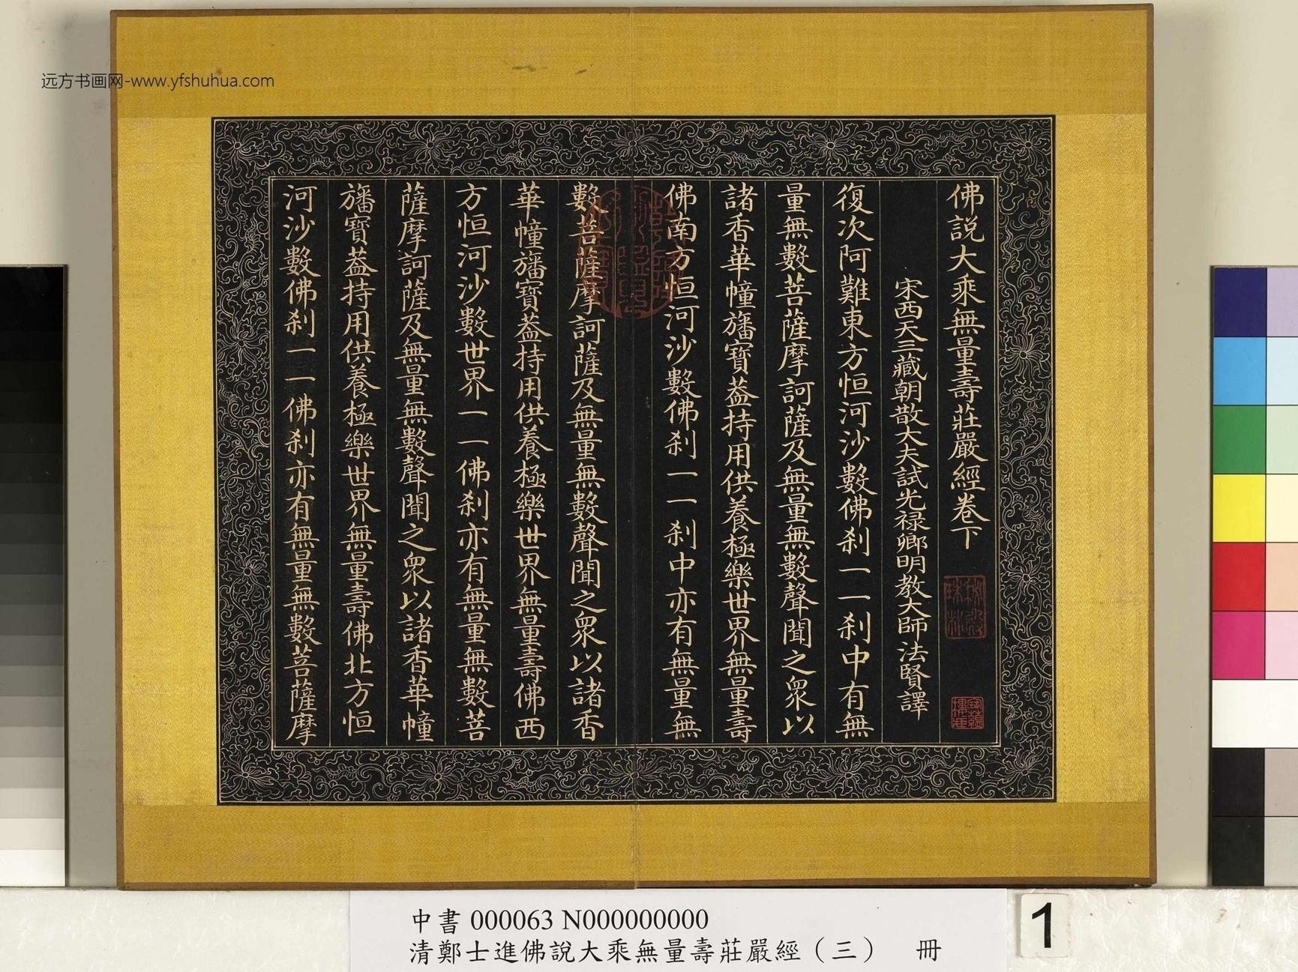 远方书画网-www.yfshuhua.com
佛説大乘無量壽莊嚴經卷下
宋西天三藏朝散大夫試光禄卿明教大師法賢譯
復次阿難東方恒河沙數佛刹一一刹中有無
量無數菩薩摩訶薩及無量無數聲聞之衆以
諸香華幢旛寳葢持用供養極樂世界無量壽
佛南方恒河沙數佛刹一一刹中亦有無量無
數菩薩摩訶薩及無量無數聲聞之衆以諸香
華幢旛寳葢持用供養極樂世界無量壽佛西
方恒河沙數世界一一佛刹亦有無量無數菩
薩摩訶薩及無量無數聲聞之衆以諸香華幢
旛寳葢持用供養極樂世界無量壽佛北方恒
河沙數佛刹一一佛刹亦有無量無數菩薩摩
中書 000063 N000000000
清鄭士進佛說大乘無量壽莊嚴經（三） 冊
1